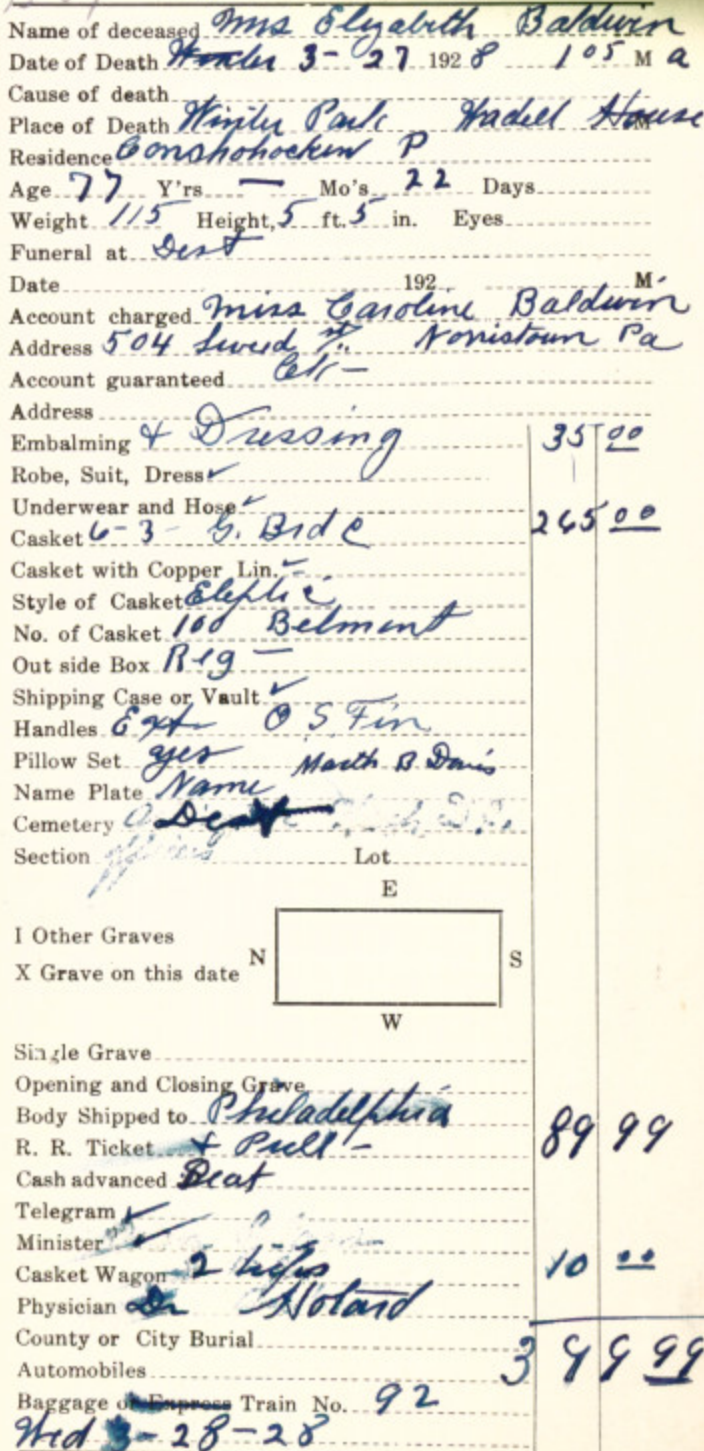 Name of deceased Mrs Elizabeth Baldwin
Date of Death 3-27 1928 1 05 M a
Cause of death
Place of Death Winter Park Wadell House
Residence Conshohocken P
Age 77 Y'rs — Mo's 22 Days
Weight 115 Height, 5 ft. 5 in. Eyes
Funeral at Dest
Date 192 M
Account charged Miss Caroline Baldwin
Address 504 Swede St. Norristown Pa
Account guaranteed
Address
Embalming & Dressing 35 00
Robe, Suit, Dress ✓
Underwear and Hose ✓
Casket 6-3- G. Brd C 265 00
Casket with Copper Lin. -
Style of Casket Eleptic
No. of Casket 100 Belmont
Out side Box Reg —
Shipping Case or Vault ✓
Handles Ext O S Fin
Pillow Set yes Marth B Davis
Name Plate Name
Cemetery Dest
Section Lot
E
I Other Graves
N S
X Grave on this date
W
Single Grave
Opening and Closing Grave
Body Shipped to Philadelphia
R. R. Ticket + Pull - 89 99
Cash advanced
Telegram ✓
Minister ✓
Casket Wagon 2 10 00
Physician Dr Hotard
County or City Burial
399 99
Automobiles
Baggage or Express Train No. 92
Wed 3-28-28